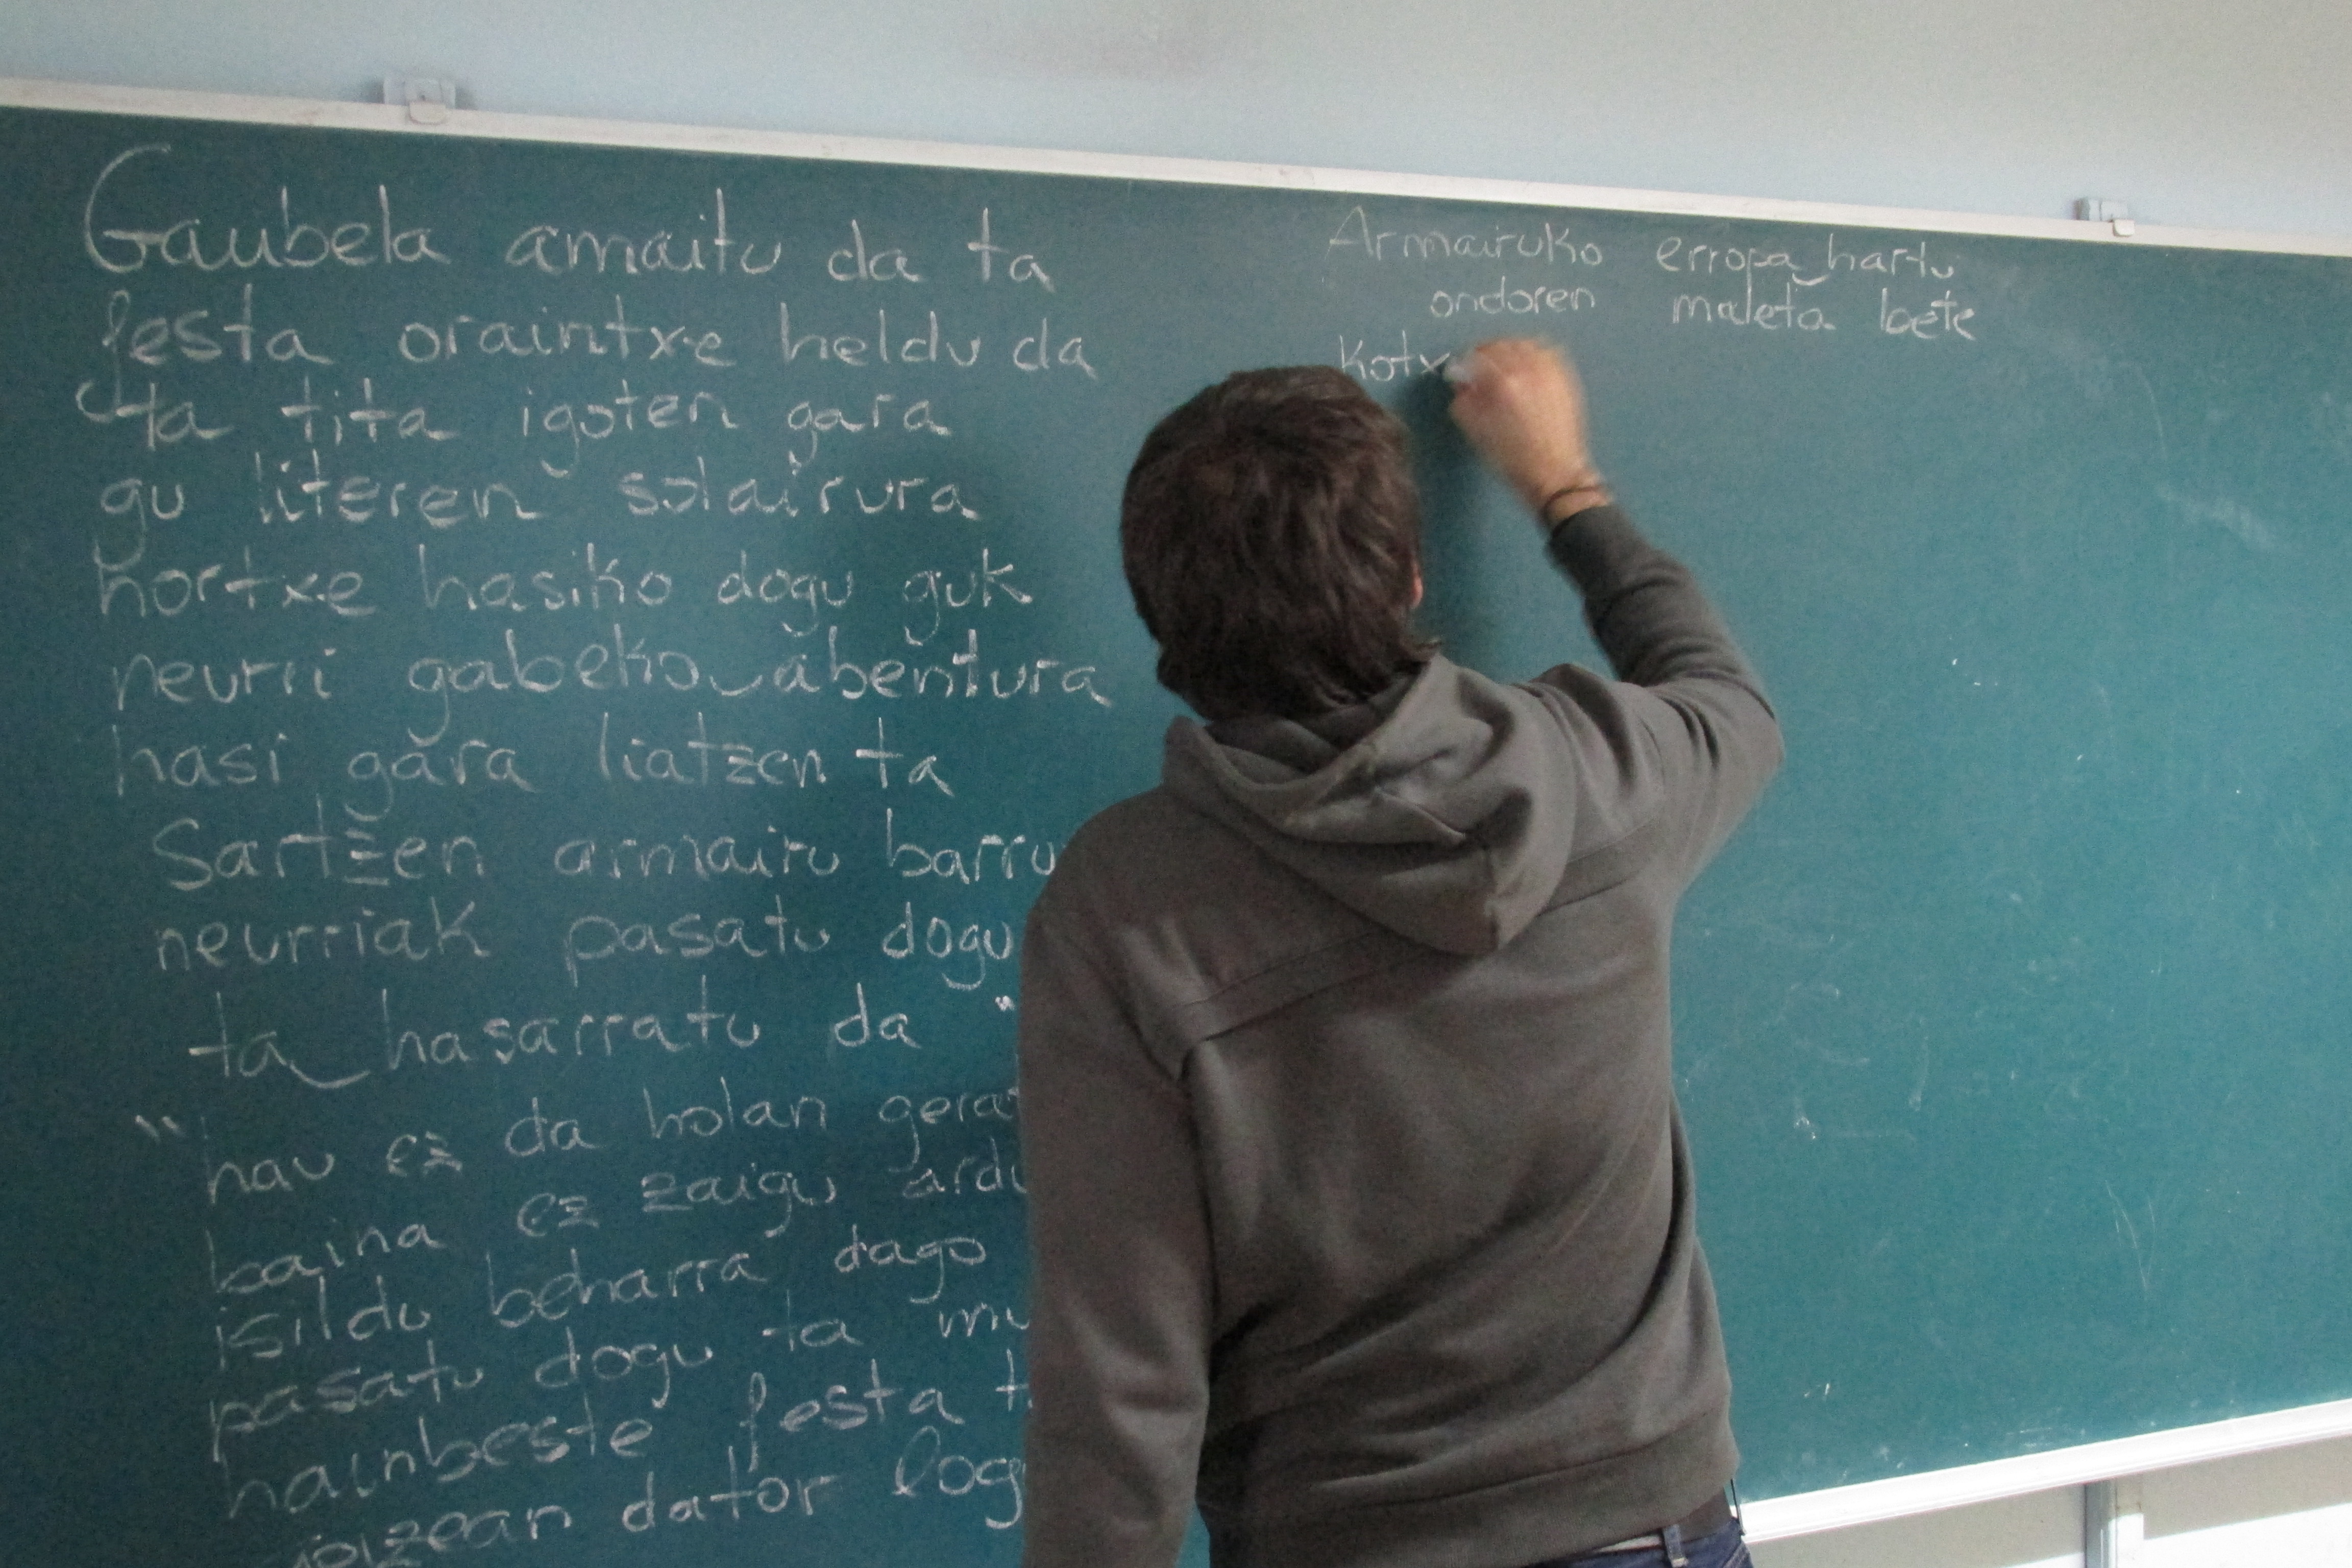 Gaubela amaitu da ta
festa oraintxe heldu da
ta tita igoten gara
gu literen solairura
hortxe hasiko dogu guk
neurri gabeko abentura
hasi gara liatzen ta
Sartzen armairu barru
neurriak pasatu dogu
ta hasarratu da "
"hau ez da holan
baina ez zaigu
isildu beharra dago
pasatu dogu ta
hainbeste festa
goizean dator
Armairuko erropa hartu
ondoren maleta bete
Kotx